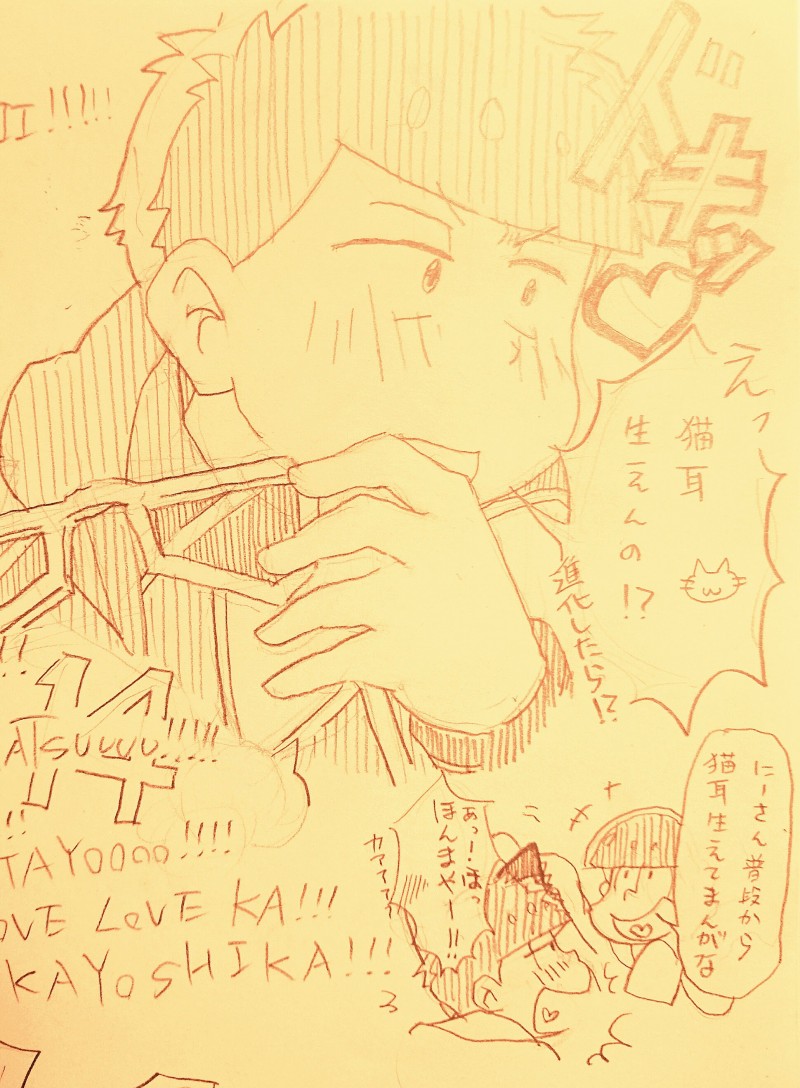 ドキッ
えっ
猫耳
生えんの!?
進化したら!?
にーさん普段から
猫耳生えてまんがな
あっ!ほっ
ほんまやー!!
カアアアァ
II!!!!!
ATSUUUU!!!!!
!!
TAYOOOO!!!!
OVE LOVE KA!!!
KAYOSHIKA!!!